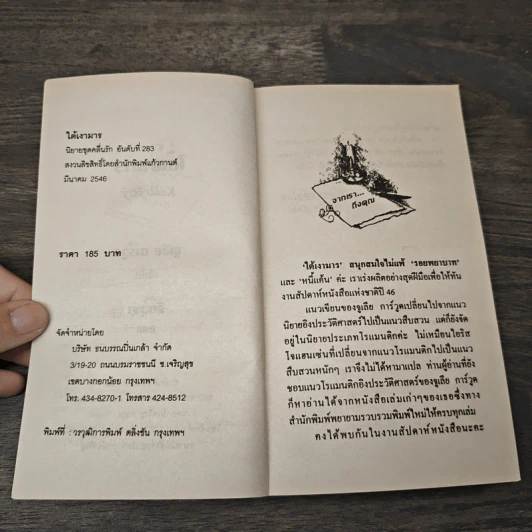 ใต้เงามาร
นิยายชุดคลื่นรัก อันดับที่ 283
สงวนลิขสิทธิ์โดยสำนักพิมพ์แก้วกานต์
มีนาคม 2546
ราคา 185 บาท
จัดจำหน่ายโดย
บริษัท ธนบรรณปิ่นเกล้า จำกัด
3/19-20 ถนนบรมราชชนนี ซ.เจริญสุข
เขตบางกอกน้อย กรุงเทพฯ
โทร. 434-8270-1 โทรสาร 424-8512
พิมพ์ที่ : วรวุฒิการพิมพ์ ตลิ่งชัน กรุงเทพฯ
จากเรา...
ถึงคุณ
'ใต้เงามาร' สนุกสมใจไม่แพ้ 'รอยพยาบาท'
และ 'หนี้แค้น' ค่ะ เราเร่งผลิตอย่างสุดฝีมือเพื่อให้ทัน
งานสัปดาห์หนังสือแห่งชาติปี 46
แนวเขียนของจูเลีย การ์วูดเปลี่ยนไปจากแนว
นิยายอิงประวัติศาสตร์ไปเป็นแนวสืบสวน แต่ก็ยังจัด
อยู่ในนิยายประเภทโรแมนติกค่ะ ไม่เหมือนไอริส
โจแฮนเซ่นที่เปลี่ยนจากแนวโรแมนติกไปเป็นแนว
สืบสวนหนักๆ เราจึงไม่ได้หามาแปล ท่านผู้อ่านที่ยัง
ชอบแนวโรแมนติกอิงประวัติศาสตร์ของจูเลีย การ์วูด
ก็หาอ่านได้จากหนังสือเล่มเก่าๆของเธอซึ่งทาง
สำนักพิมพ์พยายามรวบรวมพิมพ์ใหม่ให้ครบทุกเล่ม
คงได้พบกันในงานสัปดาห์หนังสือนะคะ